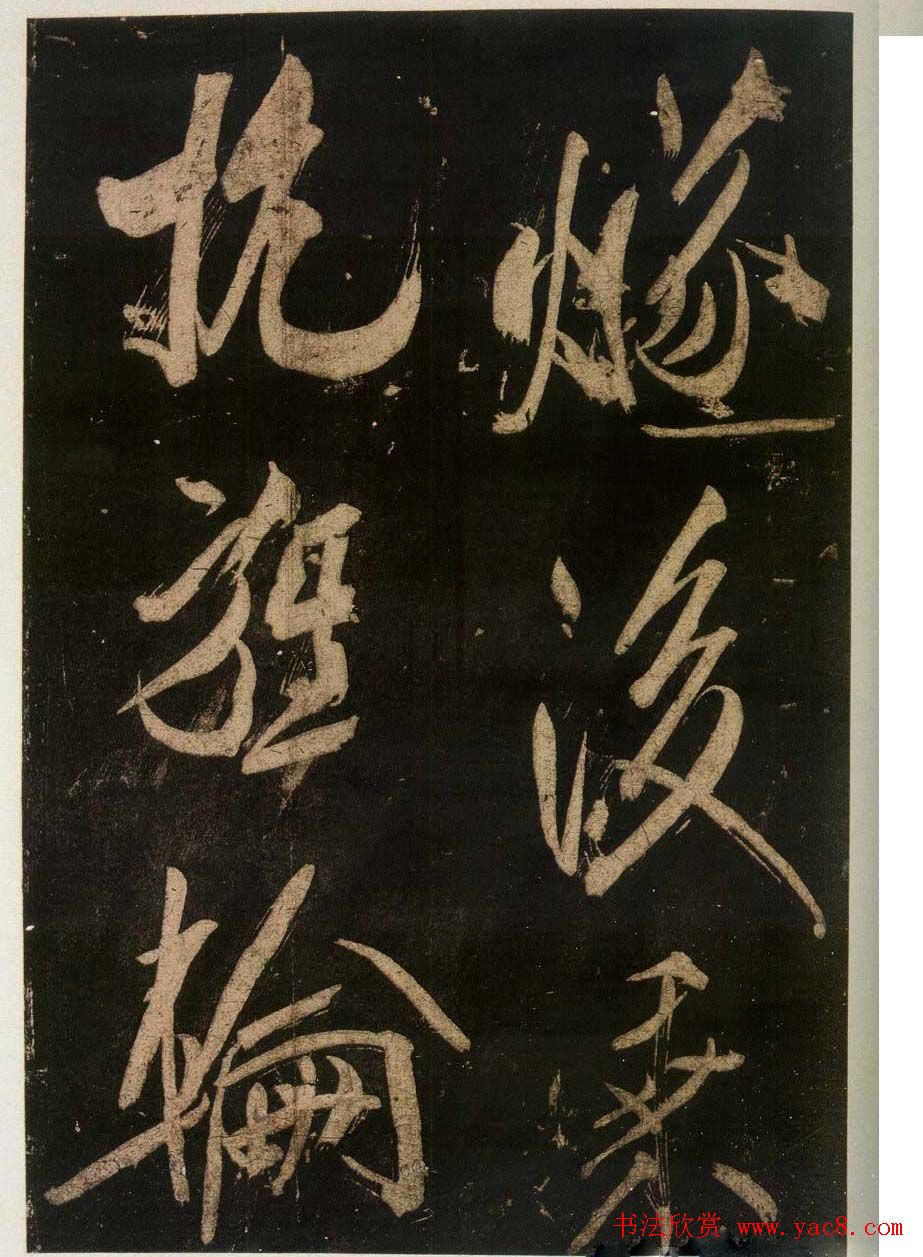 燧後乘
抗旌輪
书法欣赏 www.yac8.com